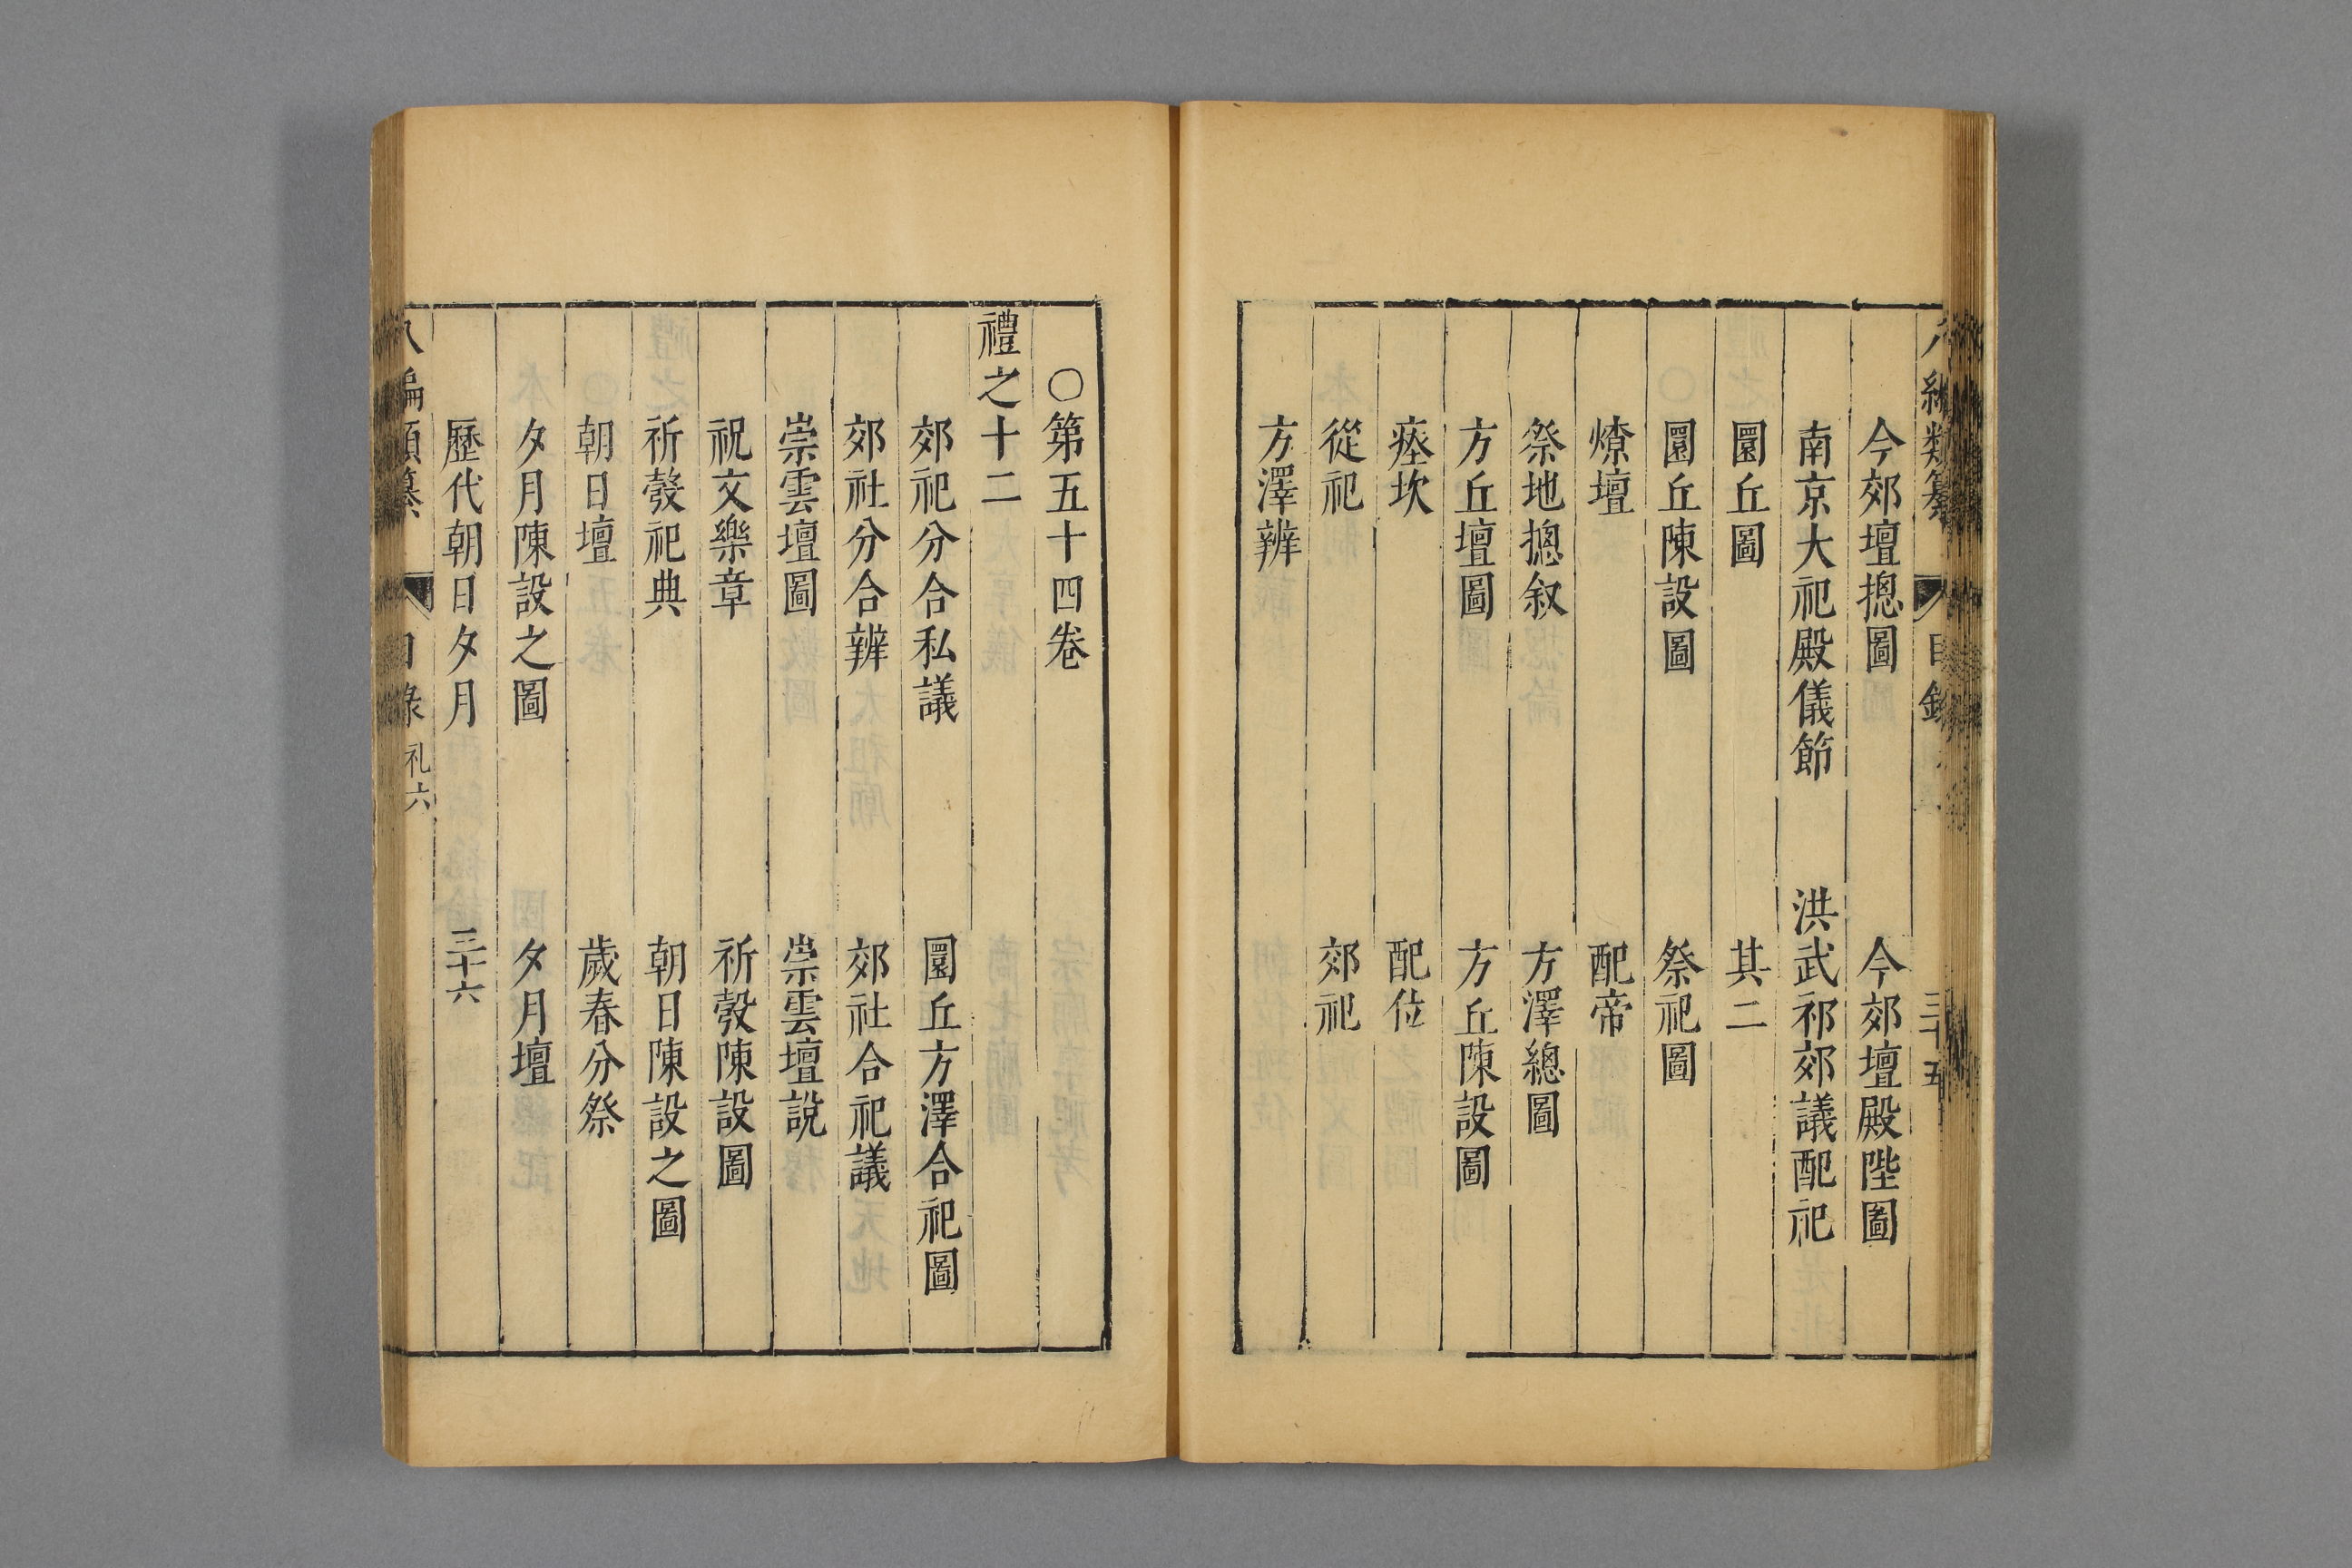 今郊壇摠圖　今郊壇殿陛圖
南京大祀殿儀節　洪武祁郊議配祀
圜丘圖　其二
圜丘陳設圖　祭祀圖
燎壇　配帝
祭地摠叙　方澤總圖
方丘壇圖　方丘陳設圖
瘞坎　配位
從祀　郊祀
方澤辨
〇第五十四卷
禮之十二
郊祀分合私議　圜丘方澤合祀圖
郊社分合辨　郊社合祀議
崇雲壇圖　崇雲壇說
祝文樂章　祈穀陳設圖
祈穀祀典　朝日陳設之圖
朝日壇　歲春分祭
夕月陳設之圖　夕月壇
歷代朝日夕月
八編類纂　目錄　礼六　三十六